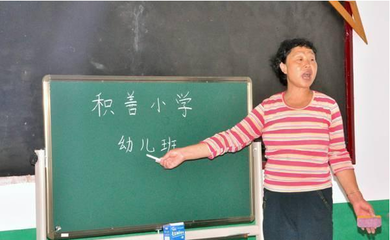 积善小学
幼儿班